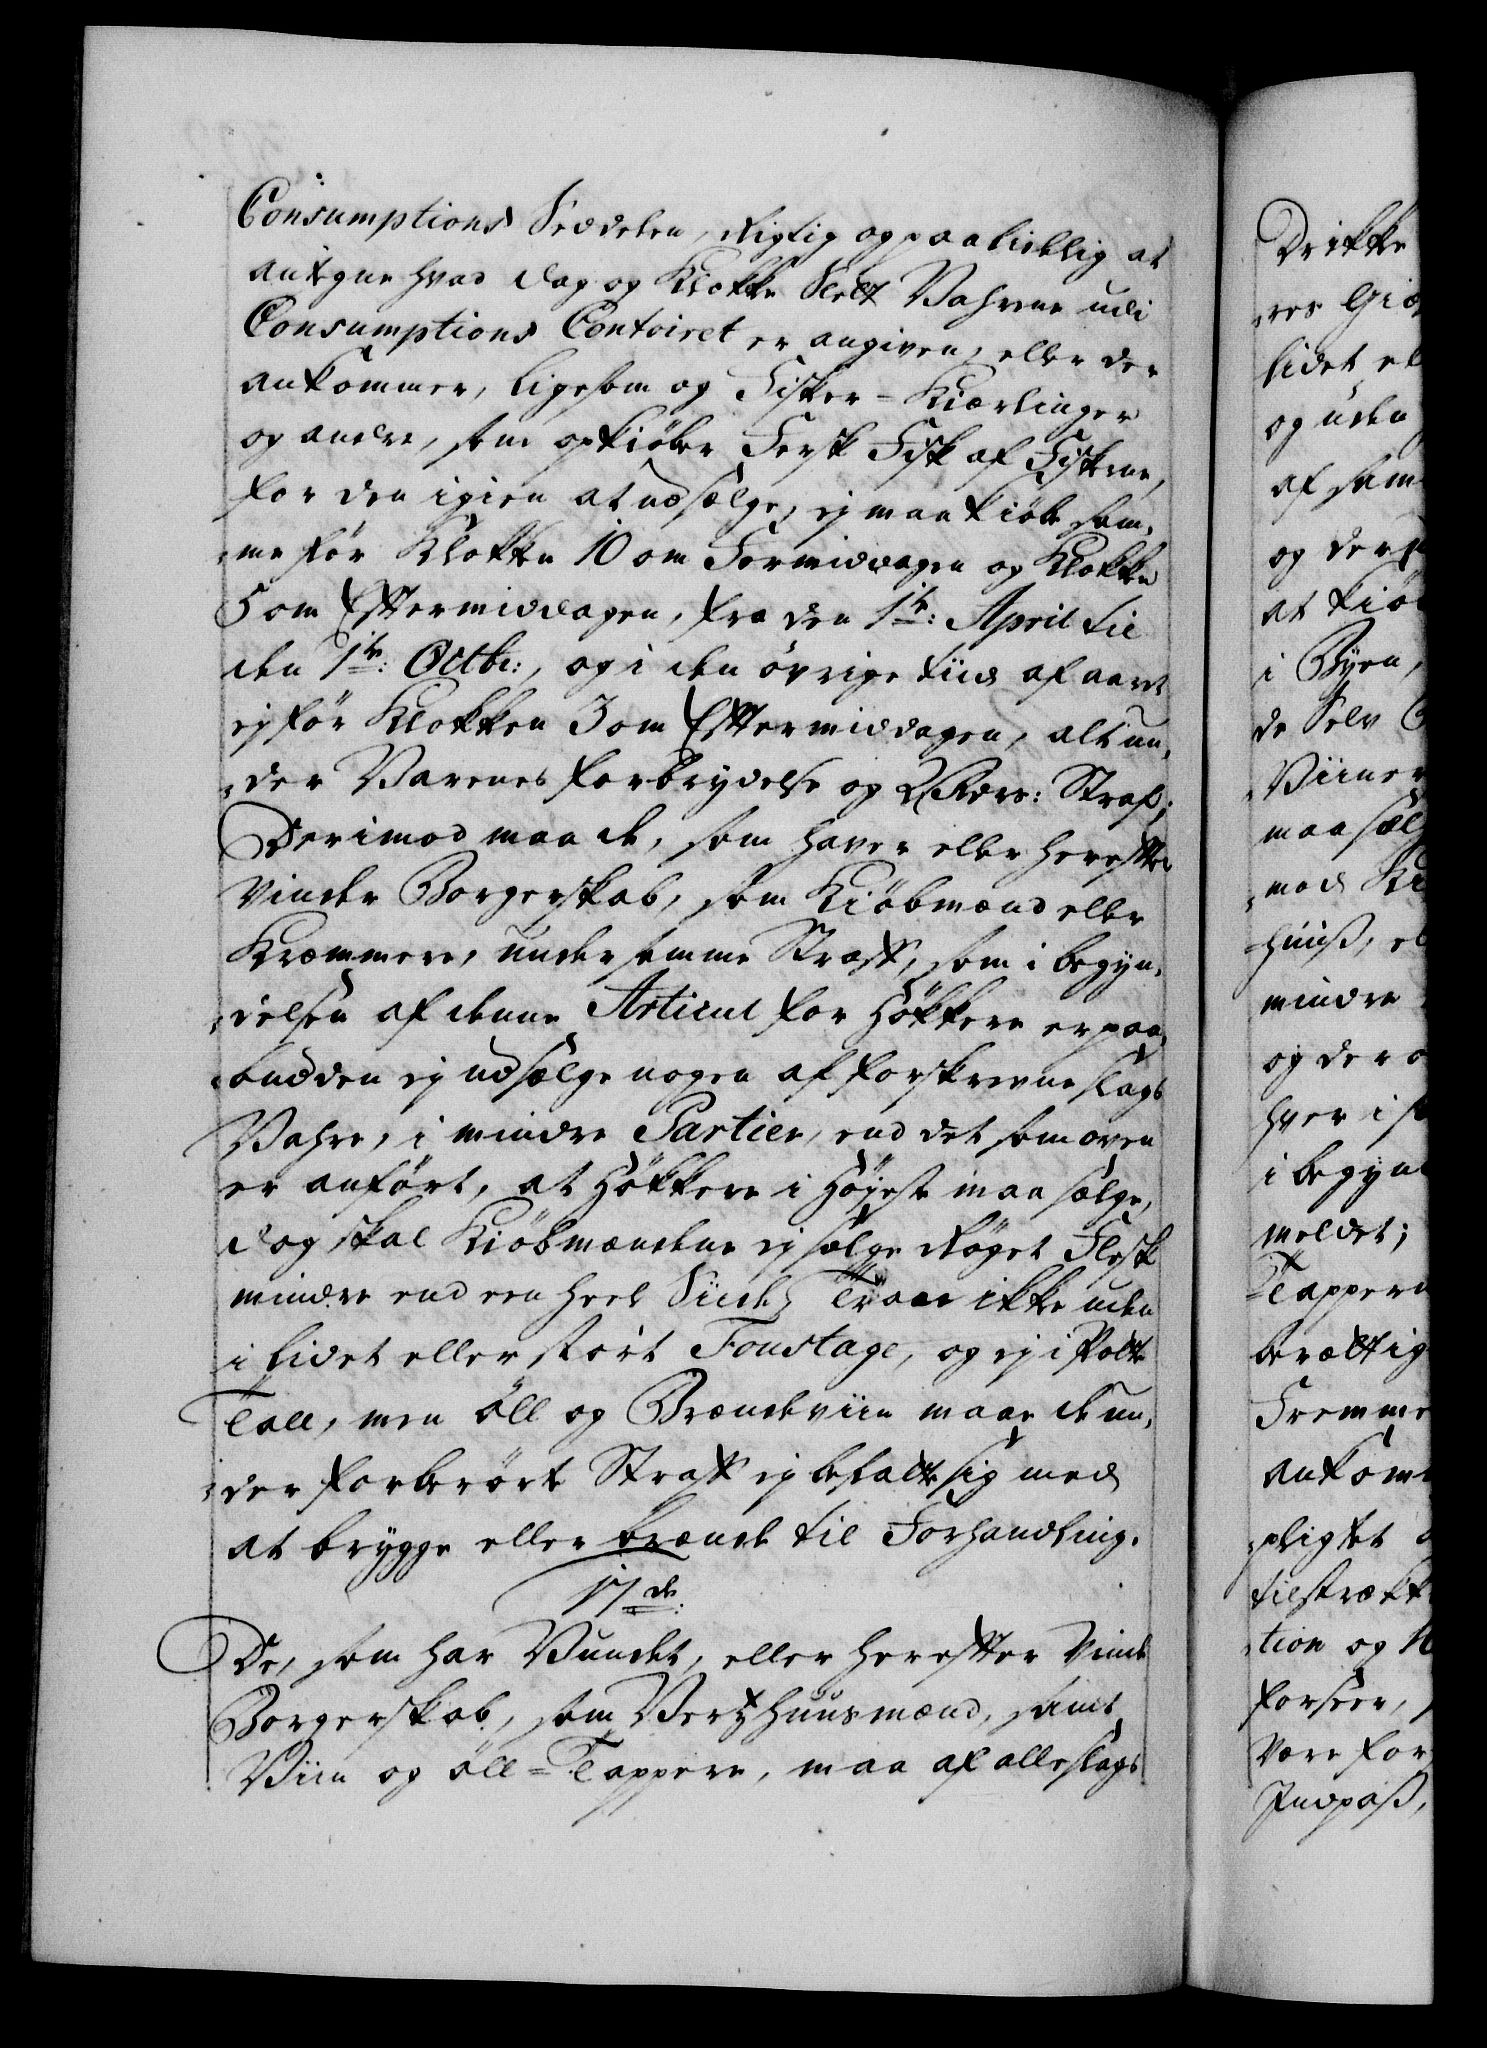 Consumptions Seddelen, Rigtig og paalidelig at
antegne hvad Dag og Klokke Slet Vahrene udi
Consumptions Contoiret er angiven, eller der
ankommer, ligesom og Fisker-Kiærlinger
og andre, som opkiöber Fersk Fisk af Fiskerne,
for den igien at udsælge, ej maa kiöbe sam-
me för Klokken 10 om Formiddagen og Klokken
5 om Efftermiddagen, fra den 1te: April til
den 1te: Octbr:, og i den övrige tiid af aaret
ej för Klokken 3 om Efftermiddagen, alt un-
der Varenes forbrydelse og 2 Rdrs: Straf;
Derimod maa de, som haver eller herefter
vinder Borgerskab, som Kiöbmænd eller
Kræmmere, under samme Straff, som i begyn-
delsen af denne Articul for Hökkere er paa-
budden ej udsælge nogen af forskrevne slags
Vahre, i mindre Partier, end det som oven
er anfört, at Hökkere i Höyeste maa sælge,
dog skal Kiöbmændene ej sælge Röget Flesk
mindre end een heel Siide, Traan ikke uden
i lidet eller stort Foustage, og ej i Potte
Tall, men Öll og Brændeviin maae de un-
der forberörte Straff ej befatte sig med
at brygge eller brænde til Forhandling.
17de:
De, som har Vundet, eller herefter vinde
Borgerskab, som Vertzhuusmænd, samt
Viin og Öll-Tappere, maa af alle slags
Drikke
og uden
af sam
og ders
at kiö
i Byen,
de Selv
Viiner
maa sælg
mod
huus, el
mindre
og der
hver i
i begyn
meldet;
Tappern
berættig
Fremme
ankom
pligtet
tilstrækk
tion og
forseer,
være for
Indpaß,